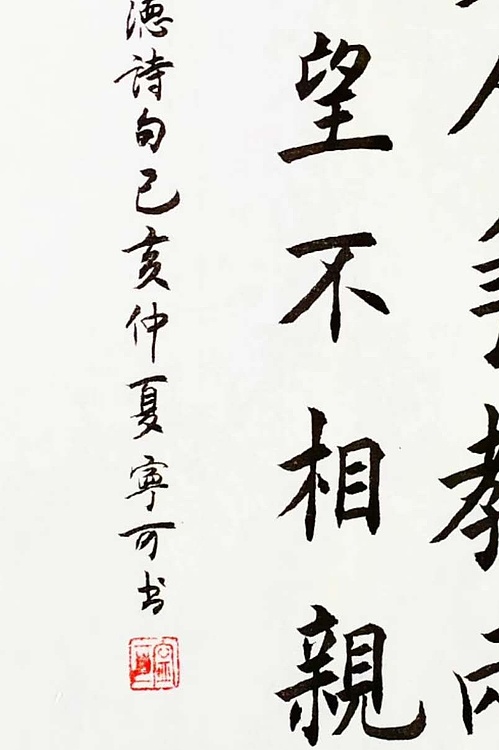 教
望不相親
德詩句己亥仲夏寧可书